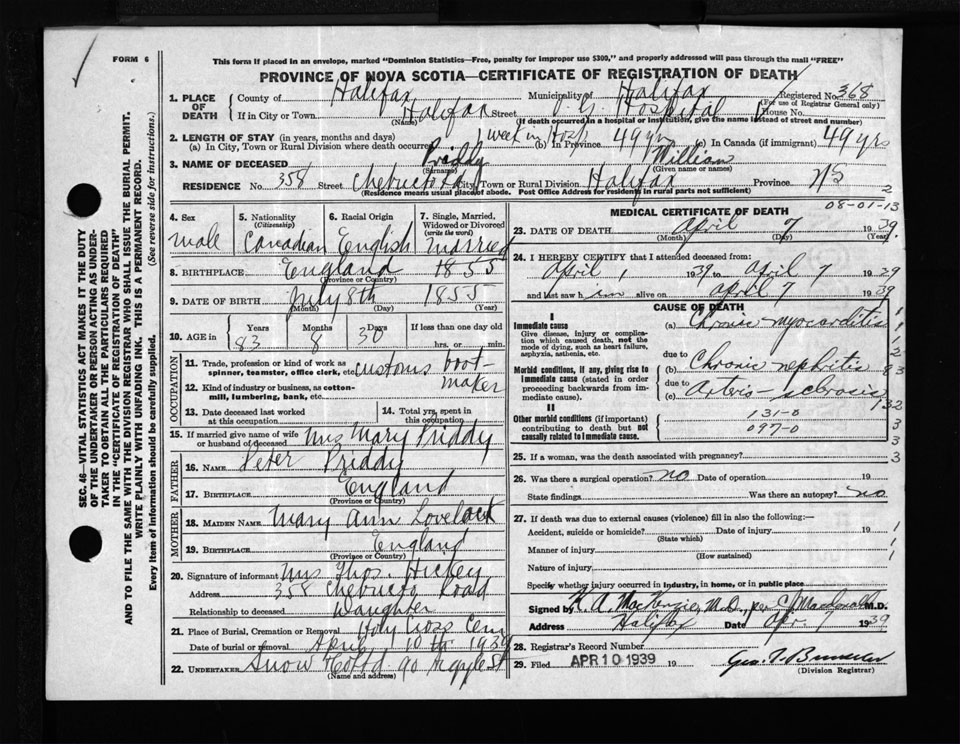 FORM 6
This form if placed in an envelope, marked "Dominion Statistics—Free, penalty for improper use $300," and properly addressed will pass through the mail "FREE"
PROVINCE OF NOVA SCOTIA—CERTIFICATE OF REGISTRATION OF DEATH
SEC. 46—VITAL STATISTICS ACT MAKES IT THE DUTY
OF THE UNDERTAKER OR PERSON ACTING AS UNDER-
TAKER TO OBTAIN ALL THE PARTICULARS REQUIRED
IN THE "CERTIFICATE OF REGISTRATION OF DEATH"
AND TO FILE THE SAME WITH THE DIVISION REGISTRAR WHO SHALL ISSUE THE BURIAL PERMIT.
WRITE PLAINLY WITH UNFADING INK. THIS IS A PERMANENT RECORD.
Every item of information should be carefully supplied. (See reverse side for instructions.)
1. PLACE OF DEATH County of Halifax Municipality of Halifax Registered No. 368
(For use of Registrar General only)
If in City or Town Halifax Street V. G. Hospital House No.
(Name) (If death occurred in a hospital or institution, give the name instead of street and number)
2. LENGTH OF STAY (in years, months and days)
(a) In City, Town or Rural Division where death occurred 1 week in Hosp (b) In Province 49 yrs (c) In Canada (if immigrant) 49 yrs
3. NAME OF DECEASED Priddy William
(Surname) (Given name or names)
RESIDENCE No. 358 Street Chebucto Rd City, Town or Rural Division Halifax Province NS
(Residence means usual place of abode. Post Office Address for residents in rural parts not sufficient)
2
4. Sex male
5. Nationality (Citizenship) Canadian
6. Racial Origin English
7. Single, Married, Widowed or Divorced (write the word) married
8. BIRTHPLACE England 1855
(Province or Country)
9. DATE OF BIRTH July 8th 1855
(Month) (Day) (Year)
10. AGE in Years 83 Months 8 Days 30 If less than one day old
hrs. or min.
OCCUPATION
11. Trade, profession or kind of work as spinner, teamster, office clerk, etc. customs boot-
maker
12. Kind of industry or business, as cotton-mill, lumbering, bank, etc.
13. Date deceased last worked at this occupation
14. Total yrs. spent in this occupation
15. If married give name of wife or husband of deceased Mrs Mary Priddy
FATHER
16. NAME Peter Priddy
17. BIRTHPLACE England
(Province or Country)
MOTHER
18. MAIDEN NAME Mary Ann Lovelock
19. BIRTHPLACE England
(Province or Country)
20. Signature of informant Mrs Thos. Hickey
Address 358 Chebucto Road
Relationship to deceased Daughter
21. Place of Burial, Cremation or Removal Holy Cross Cem
Date of burial or removal April 10th 1939
22. UNDERTAKER Snow Co Ltd 90 Argyle St
(Name and address)
MEDICAL CERTIFICATE OF DEATH
08-01-13
23. DATE OF DEATH April 7 1939
(Month) (Day) (Year)
24. I HEREBY CERTIFY that I attended deceased from
April 1 1939 to April 7 1939
and last saw h im alive on April 7 1939
CAUSE OF DEATH
I
Immediate cause
Give disease, injury or complication which caused death, not the mode of dying, such as heart failure, asphyxia, asthenia, etc.
(a) Chronic myocarditis
due to
Morbid conditions, if any, giving rise to immediate cause (stated in order proceeding backwards from immediate cause).
(b) Chronic nephritis
due to
(c) Arterio-sclerosis
II
Other morbid conditions (if important) contributing to death but not causally related to immediate cause.
131-0
097-0
1
1
2
83
132
3
3
3
25. If a woman, was the death associated with pregnancy?
26. Was there a surgical operation? no Date of operation 19
State findings Was there an autopsy? no
27. If death was due to external causes (violence) fill in also the following:—
Accident, suicide or homicide? Date of injury 19
(State which)
Manner of injury
(How sustained)
Nature of injury
Specify whether injury occurred in industry, in home, or in public place
1
1
1
Signed by K. A. MacKenzie, M.D., per C J MacDonald M.D.
Address Halifax Date Apr. 7 1939
28. Registrar's Record Number
29. Filed APR 10 1939 19
(Division Registrar)